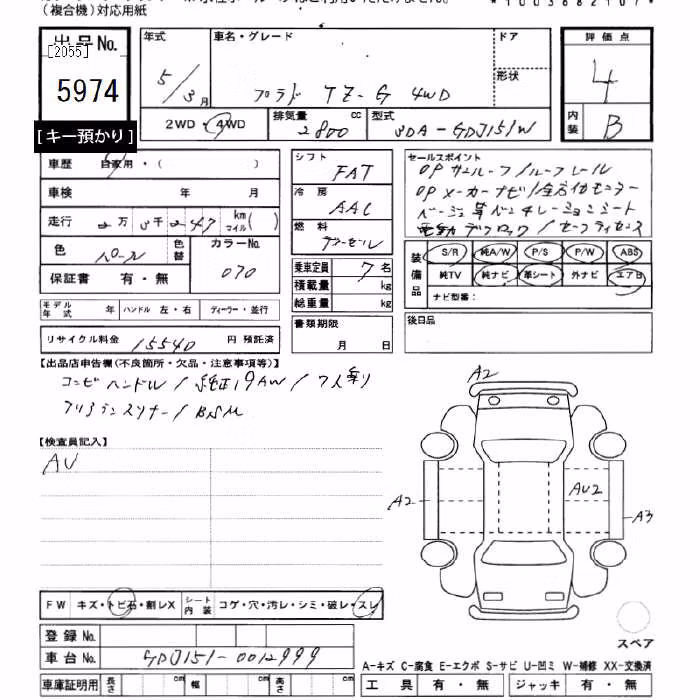 (複合機)対応用紙
出品No.
[2055]
5974
[キー預かり]
年式
5/3月
車名・グレード
プラド TZ-G 4WD
ドア
形状
評価点
4
内装
B
2WD・4WD
排気量 2800 cc
型式 3DA-GDJ151W
車歴 自家用・( )
車検 年 月
走行 2万3千247 km マイル( )
色 パール
色替
カラーNo. 070
保証書 有・無
シフト FAT
冷房 AAC
燃料 ディーゼル
乗車定員 7名
積載量 kg
総重量 kg
セールスポイント
OPサンルーフ/ルーフレール
OPメーカーナビ/全方位モニター
ベージュ革ベンチレーションシート
電動デフロック/セーフティセンス
装備品
S/R 純A/W P/S P/W ABS
純TV 純ナビ 革シート 外ナビ エアB
ナビ型番:
モデル年式 年 ハンドル 左・右 ディーラー・並行
リサイクル料金 15540 円 預託済
書類期限
月 日
後日品
【出品店申告欄(不良箇所・欠品・注意事項等)】
コンビハンドル/純正19AW/7人乗り
クリアランスソナー/BSM
【検査員記入】
AU
A2
A2
AU2
A3
FW キズ・トビ石・割レX
シート内装 コゲ・穴・汚レ・シミ・破レ・スレ
登録No.
車台No. GDJ151-0012999
車庫証明用 長さ cm 幅 cm 高さ cm
スペア
A-キズ C-腐食 E-エクボ S-サビ U-凹ミ W-補修 XX-交換済
工具 有・無 ジャッキ 有・無